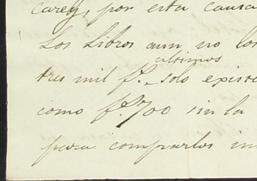 carey, por esta causa
Los Libros aun no los
ultimos
tres mil fs. solo existe
como fs. 700 sin la
para comprarlos in